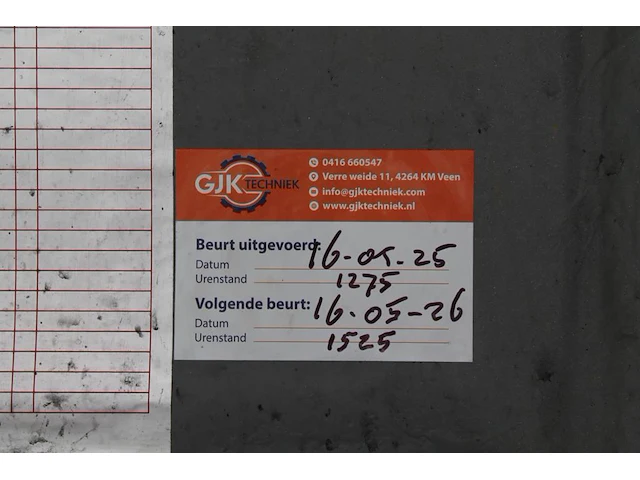 GJK TECHNIEK
0416 660547
Verre weide 11, 4264 KM Veen
info@gjktechniek.com
www.gjktechniek.nl
Beurt uitgevoerd:
Datum 16-05-25
Urenstand 1275
Volgende beurt:
Datum 16-05-26
Urenstand 1525